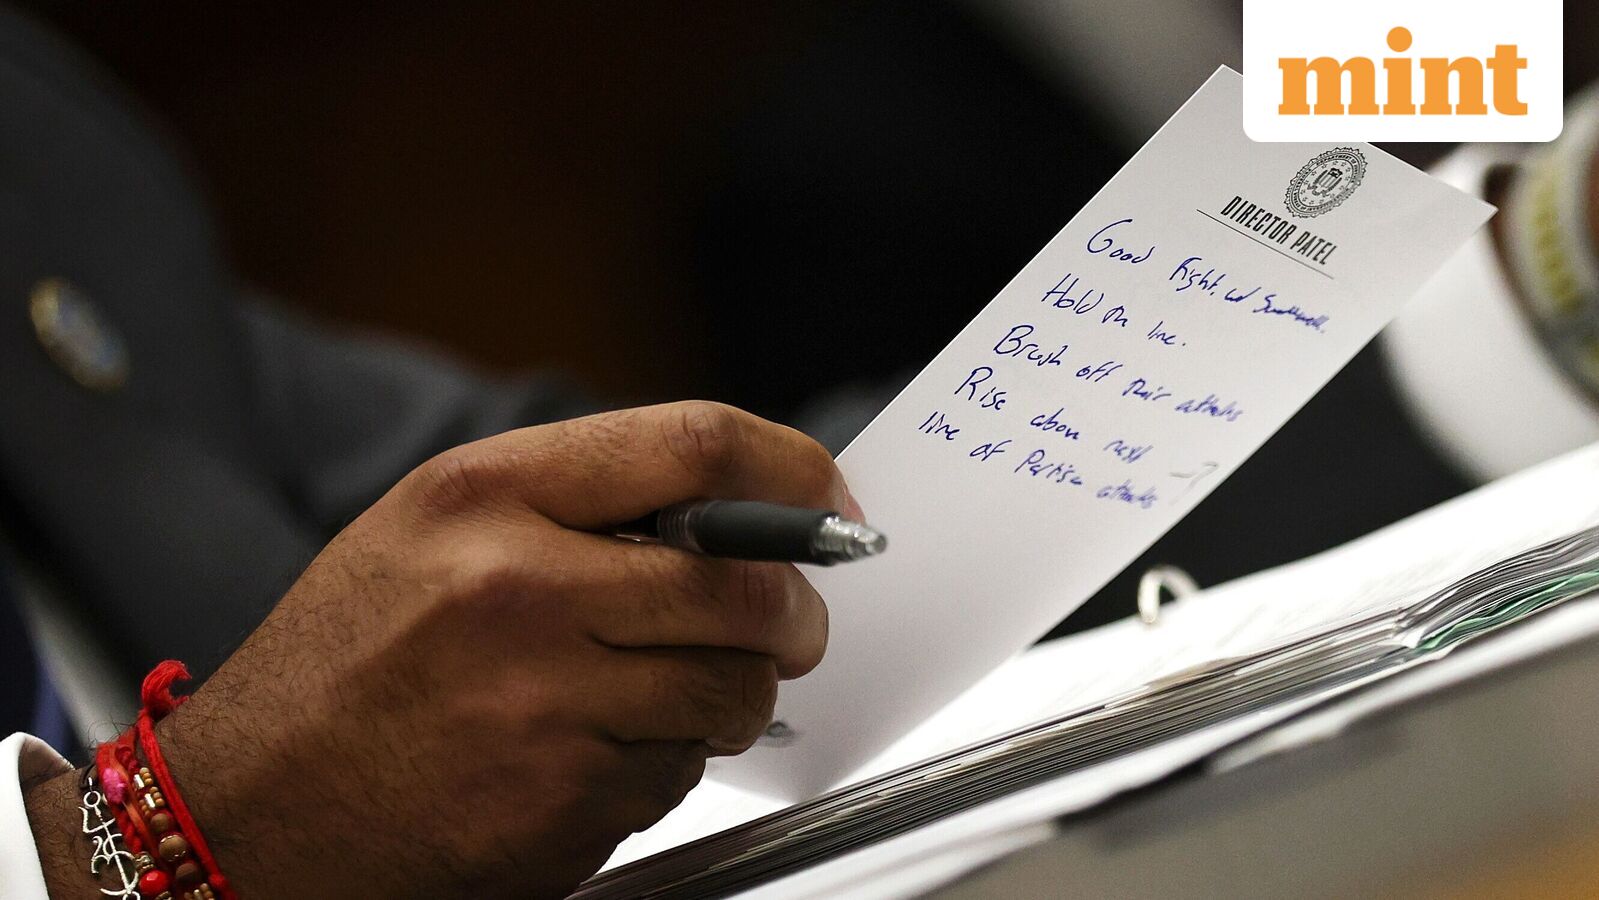 mint
DIRECTOR PATEL
Good Fight. w/ Swalwell.
Hold the line.
Brush off their attacks
Rise above next
line of Partisan attacks